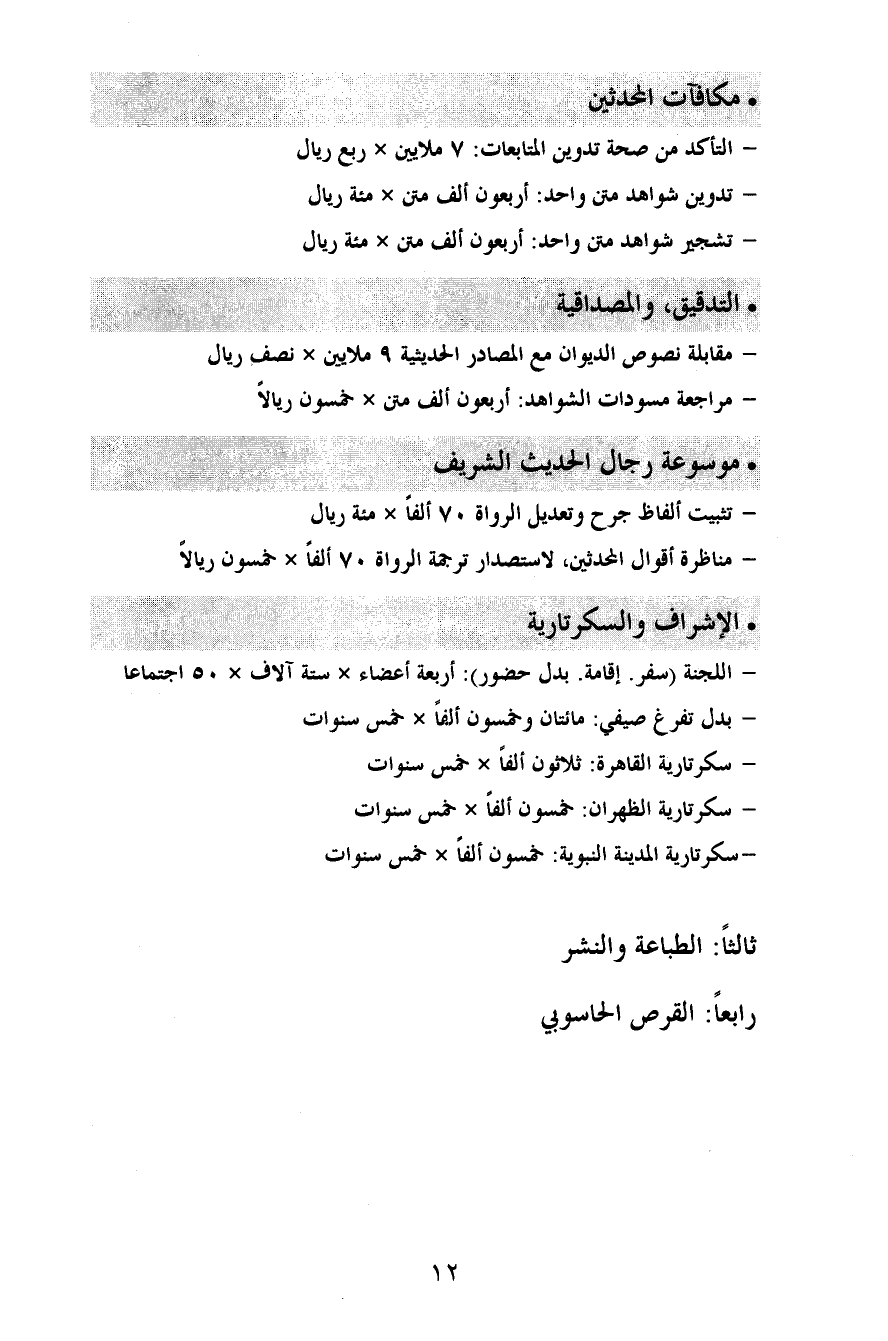 • مكافآت المحدثين
– التأكد من صحة تدوين المتابعات: ٧ ملايين × ربع ريال
– تدوين شواهد متن واحد: أربعون ألف متن × مئة ريال
– تشجير شواهد متن واحد: أربعون ألف متن × مئة ريال
• التدقيق، والمصداقية
– مقابلة نصوص الديوان مع المصادر الحديثية ٩ ملايين × نصف ريال
– مراجعة مسودات الشواهد: أربعون ألف متن × خمسون ريالاً
• موسوعة رجال الحديث الشريف
– تثبيت ألفاظ جرح وتعديل الرواة ٧٠ ألفاً × مئة ريال
– مناظرة أقوال المحدثين، لاستصدار ترجمة الرواة ٧٠ ألفاً × خمسون ريالاً
• الإشراف والسكرتارية
– اللجنة (سفر. إقامة. بدل حضور): أربعة أعضاء × ستة آلاف × ٥٠ اجتماعا
– بدل تفرغ صيفي: مائتان وخمسون ألفاً × خمس سنوات
– سكرتارية القاهرة: ثلاثون ألفاً × خمس سنوات
– سكرتارية الظهران: خمسون ألفاً × خمس سنوات
–سكرتارية المدينة النبوية: خمسون ألفاً × خمس سنوات
ثالثاً: الطباعة والنشر
رابعاً: القرص الحاسوبي
١٢